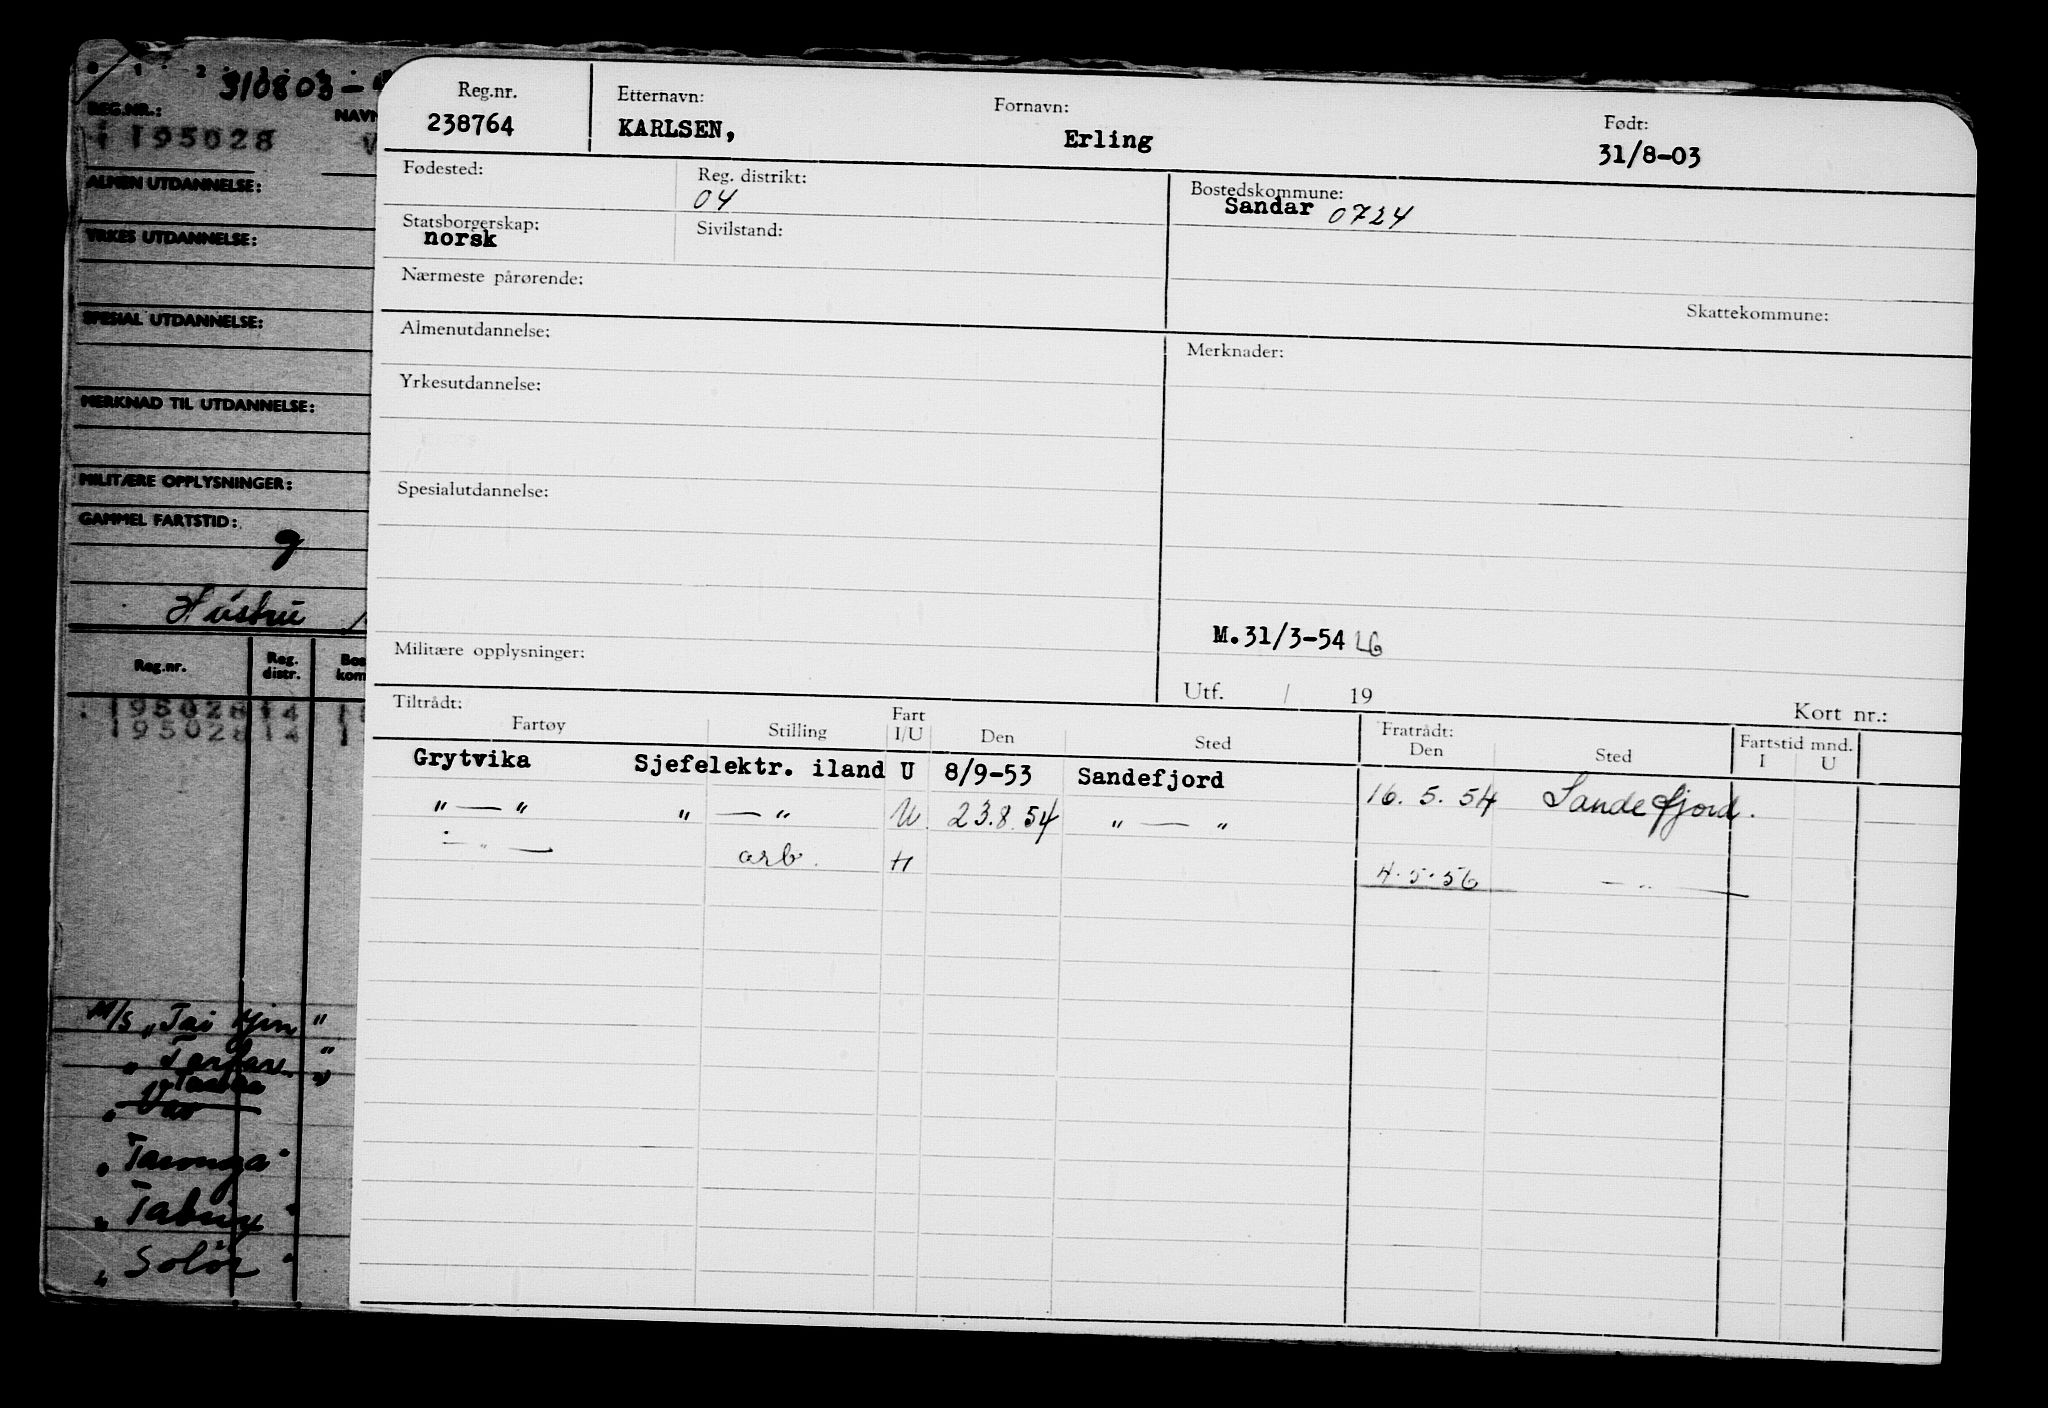 310803-
REG.NR.: NAVN
195028 V
ALMEN UTDANNELSE:
YRKES UTDANNELSE:
SPESIAL UTDANNELSE:
MERKNAD TIL UTDANNELSE:
MILITÆRE OPPLYSNINGER:
GAMMEL FARTSTID:
g
Hustru
Reg.nr. Reg. distr. Bos kom
195028 14 1
195028 14 1
M/S „Tai Yin "
"
„ "
„ Taronga "
„ "
„ Solør "
Reg.nr. Etternavn: Fornavn: Født:
238764 KARLSEN, Erling 31/8-03
Fødested: Reg. distrikt: Bostedskommune:
04 Sandar 0724
Statsborgerskap: Sivilstand:
norsk
Nærmeste pårørende:
Skattekommune:
Almenutdannelse: Merknader:
Yrkesutdannelse:
Spesialutdannelse:
M.31/3-54 LG
Militære opplysninger:
Utf. / 19 Kort nr.:
Tiltrådt: Fratrådt:
Fartøy Stilling Fart I/U Den Sted Den Sted Fartstid mnd. I U
Grytvika Sjefelektr. iland U 8/9-53 Sandefjord 16.5.54 Sandefjord.
" — " " — " U 23.8.54 " — "
— " — arb. H 4.5.56 — " —